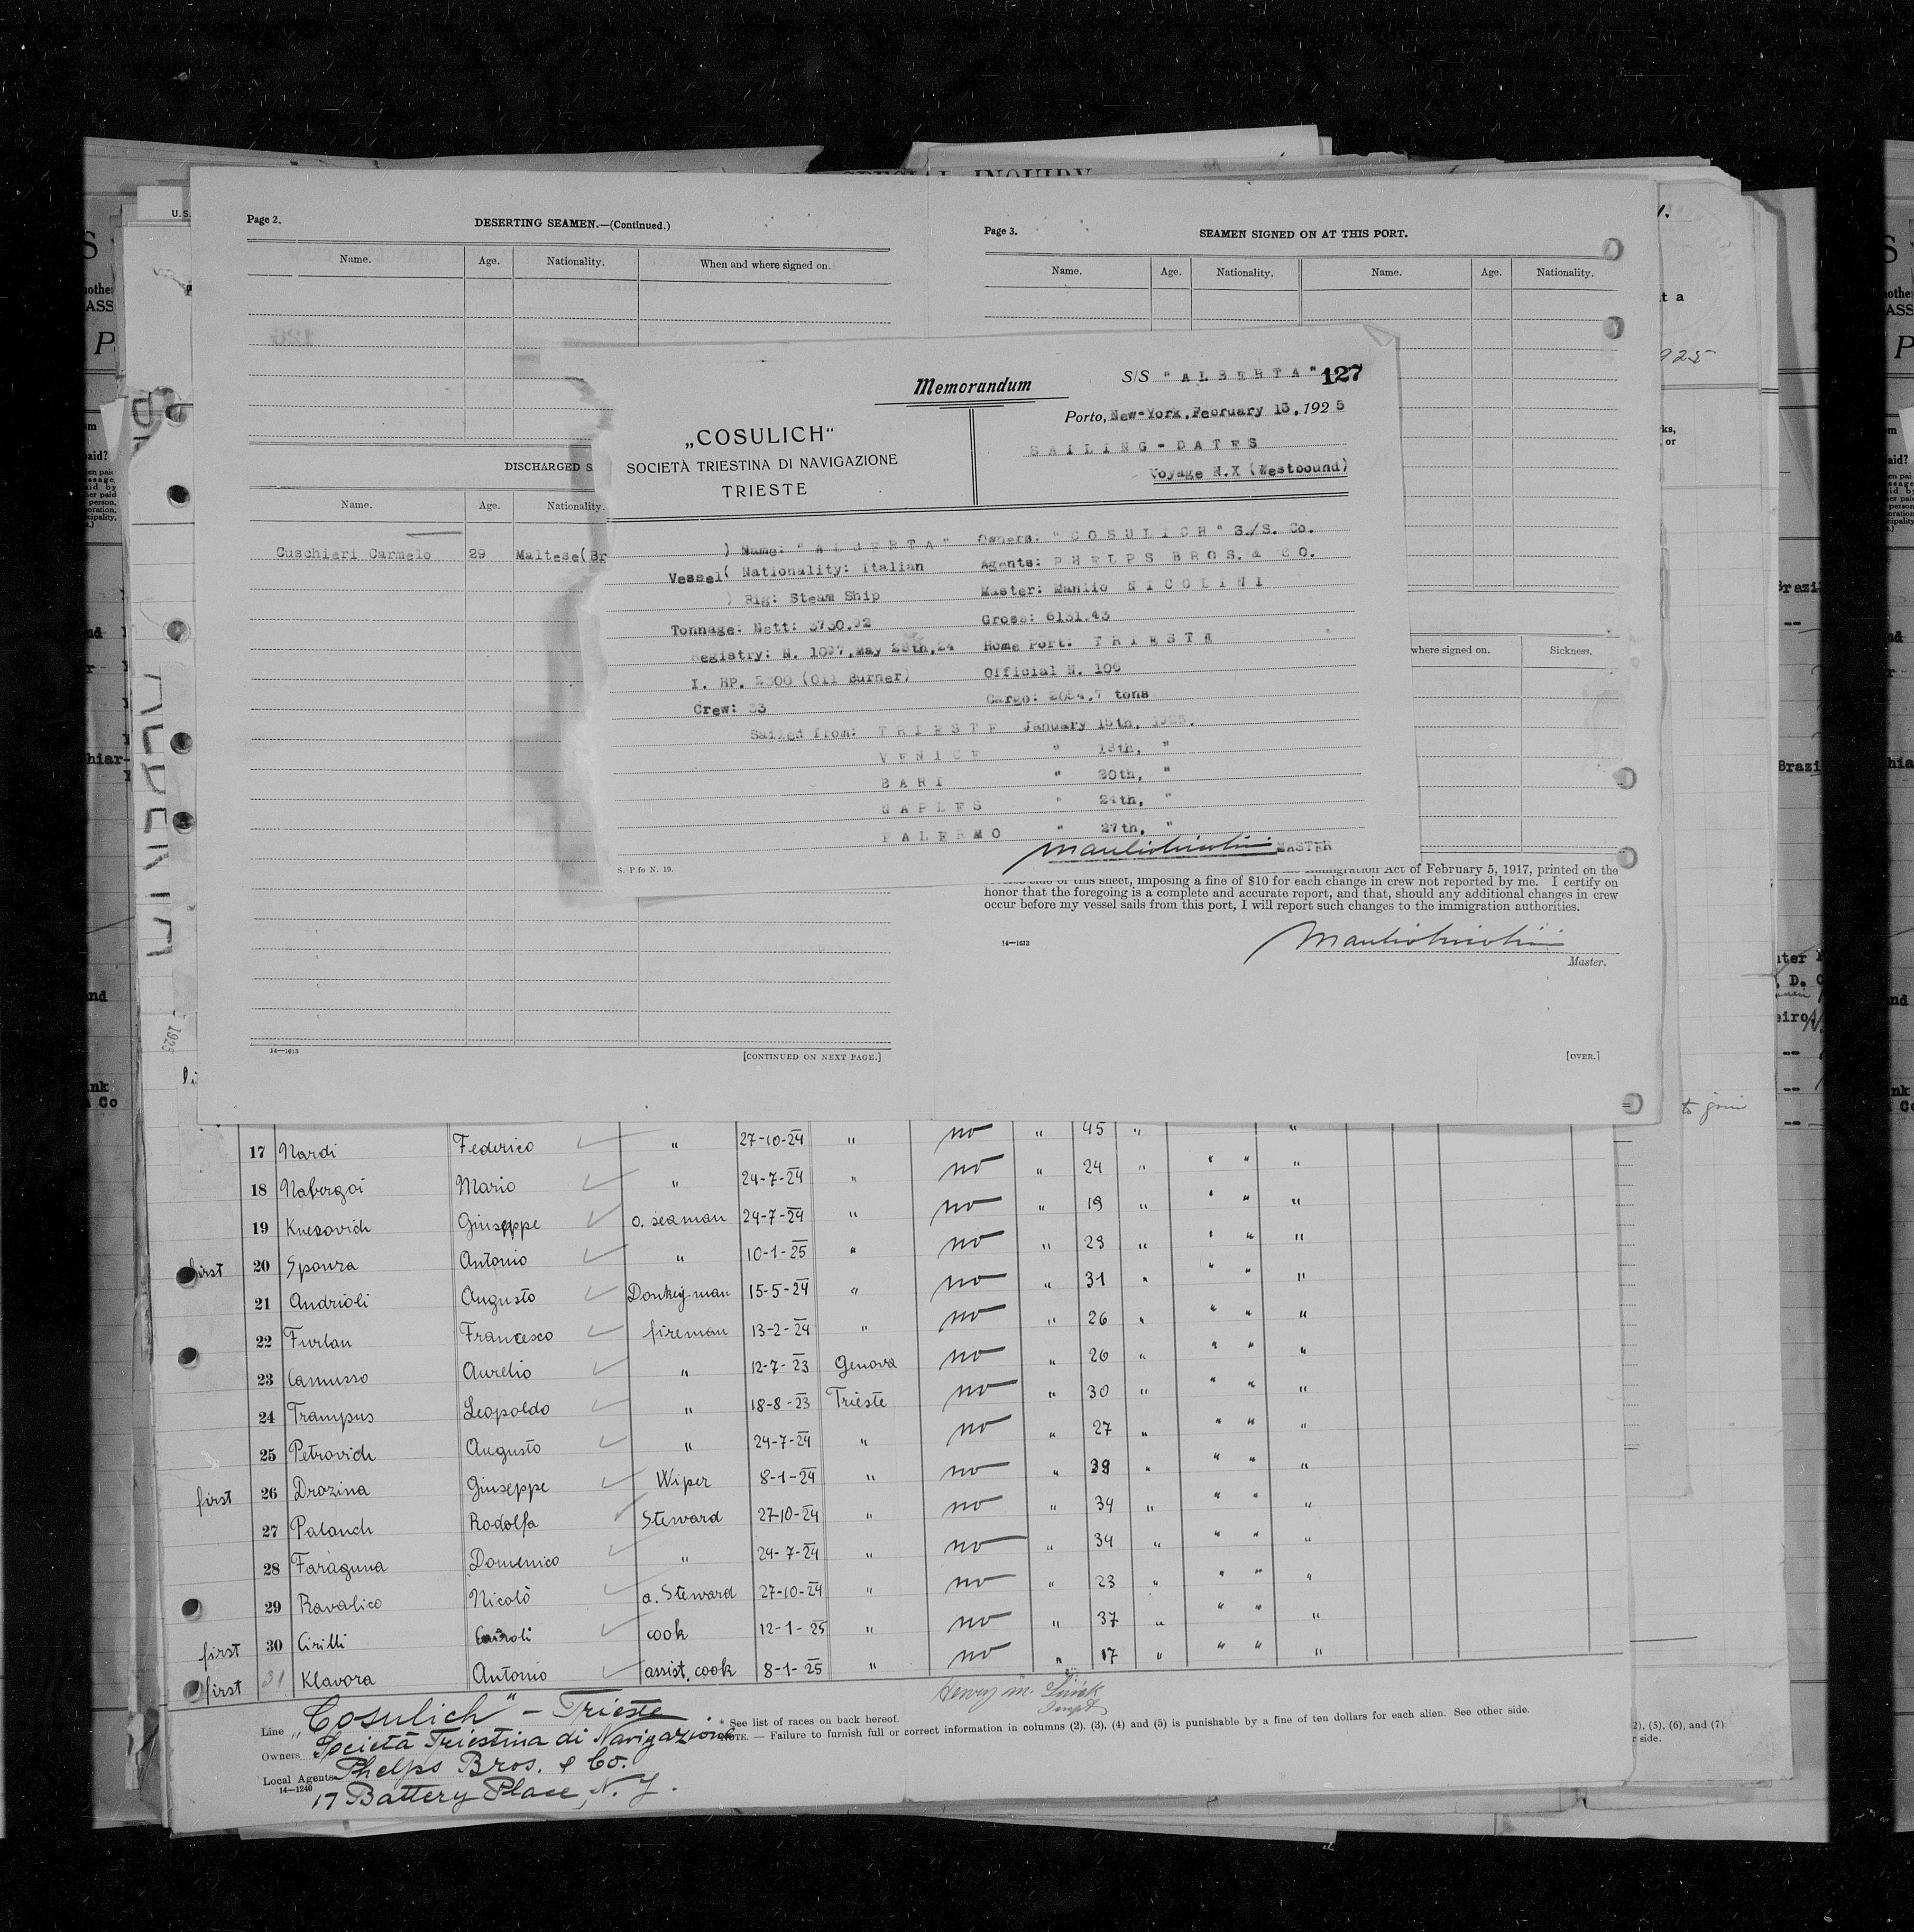 SPECIAL INQUIRY
Page 2.
DESERTING SEAMEN.—(Continued.)
Name. Age. Nationality. When and where signed on.
Page 3.
SEAMEN SIGNED ON AT THIS PORT.
Name. Age. Nationality. Name. Age. Nationality.
DISCHARGED S
Name. Age. Nationality.
Cuschieri Carmelo 29 Maltese(Br
Memorandum
S/S "ALBERTA" 127
Porto, New-York, February 13, 1925
„COSULICH“
SOCIETÀ TRIESTINA DI NAVIGAZIONE
TRIESTE
SAILING-DATES
Voyage N.X (Westbound)
) Name: "ALBERTA" Owners: "COSULICH" S./S. Co.
Vessel( Nationality: Italian Agents: PHELPS BROS. & CO.
) Rig: Steam Ship Master: Manlio NICOLINI
Tonnage: Nett: 3730.92 Gross: 6131.43
Registry: N. 1097, May 28th, 24 Home Port: TRIESTE
I. HP. 2300 (Oil Burner) Official N. 109
Crew: 33 Cargo: 2054.7 tons
Sailed from: TRIESTE January 15th, 1925.
VENICE " 18th, "
BARI " 20th, "
NAPLES " 24th, "
PALERMO " 27th, "
Manlio Nicolini MASTER
S. P.fo N. 19.
where signed on. Sickness.
Immigration Act of February 5, 1917, printed on the
side of this sheet, imposing a fine of $10 for each change in crew not reported by me. I certify on
honor that the foregoing is a complete and accurate report, and that, should any additional changes in crew
occur before my vessel sails from this port, I will report such changes to the immigration authorities.
14—1613
Manlio Nicolini
Master.
14—1613
[CONTINUED ON NEXT PAGE.]
[OVER.]
17 Nardi Federico " 27-10-24 " no " 45 " "
18 Nabergoi Mario " 24-7-24 " no " 24 " " " "
19 Knesovich Giuseppe o. seaman 24-7-24 " no " 19 " " " "
first 20 Sponza Antonio " 10-1-25 " no " 29 " " " "
21 Andrioli Augusto Donkeyman 15-5-24 " no " 31 " " " "
22 Furlan Francesco fireman 13-2-24 " no " 26 " " " "
23 Camusso Aurelio " 12-7-23 Genova no " 26 " " " "
24 Trampus Leopoldo " 18-8-23 Trieste no " 30 " " " "
25 Petrovich Augusto " 24-7-24 " no " 27 " " " "
first 26 Drozina Giuseppe Wiper 8-1-24 " no " 39 " " " "
27 Palanch Rodolfo Steward 27-10-24 " no " 34 " " " "
28 Faraguna Domenico " 24-7-24 " no " 34 " " " "
29 Ravalico Nicolò a. Steward 27-10-24 " no " 23 " " " "
first 30 Cirilli Cairoli cook 12-1-25 " no " 37 " " " "
first 31 Klavora Antonio assist. cook 8-1-25 " no " 17 " " " "
Line „Cosulich" - Trieste
Owners Società Triestina di Navigazione
Local Agents Phelps Bros. & Co.
14—1240
17 Battery Place, N.Y.
* See list of races on back hereof.
NOTE. — Failure to furnish full or correct information in columns (2), (3), (4) and (5) is punishable by a fine of ten dollars for each alien. See other side.
2), (5), (6), and (7)
r side.